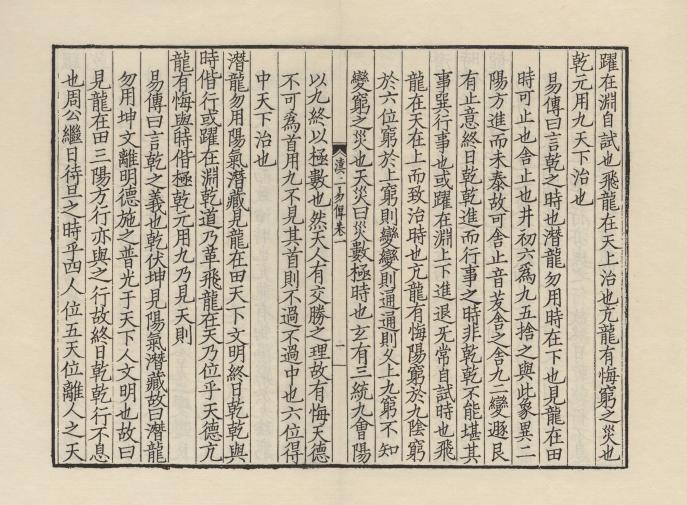 躍在淵自試也飛龍在天上治也亢龍有悔窮之災也
乾元用九天下治也
易傳曰言乾之時也潛龍勿用時在下也見龍在田
時可止也舍止也井初六為九五捨之與此象異二
陽方進而未泰故可舍止音茇舍之舍九二變遯艮
有止意終日乾乾進而行事之時非乾乾不能堪其
事巽行事也或躍在淵上下進退无常自試時也飛
龍在天在上而致治時也亢龍有悔陽窮於九陰窮
於六位窮於上窮則變變則通通則久上九窮不知
變窮之災也天災曰災數極時也玄有三統九會陽
漢上易傳卷一
一
以九終以極數也然天人有交勝之理故有悔天德
不可為首用九不見其首則不過不過中也六位得
中天下治也
潛龍勿用陽氣潛藏見龍在田天下文明終日乾乾與
時偕行或躍在淵乾道乃革飛龍在天乃位乎天德亢
龍有悔與時偕極乾元用九乃見天則
易傳曰言乾之義也乾伏坤見陽氣潛藏故曰潛龍
勿用坤文離明德施之普光于天下人文明也故曰
見龍在田三陽方行亦與之行故終日乾乾行不息
也周公繼日待旦之時乎四人位五天位離人之天